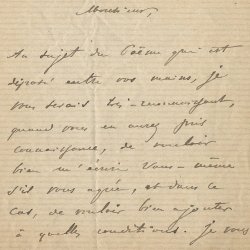 Monsieur,
Au sujet du Poëme qui est
déposé entre vos mains, je
vous serais très-reconnaissant,
quand vous en aurez pris
connaissance, de vouloir
bien m'écrire vous-même
s'il vous agrée, et dans ce
cas, de vouloir bien ajouter
à quelles conditions. Je vous